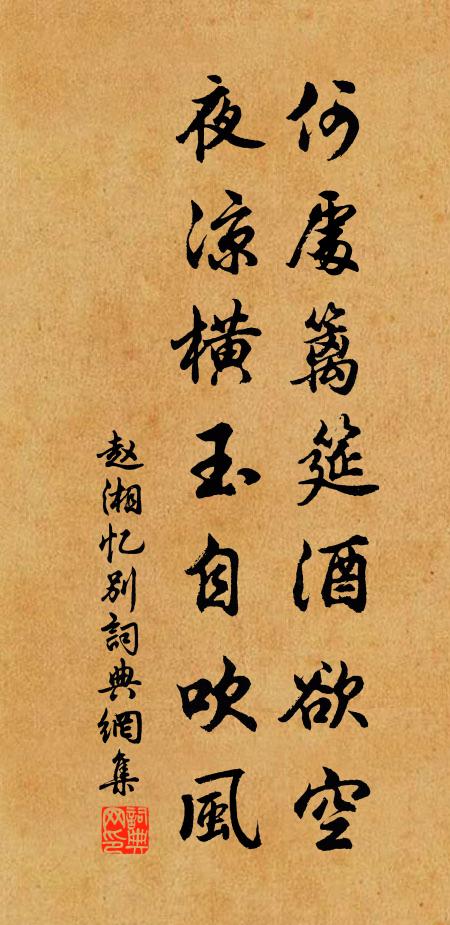 何處篱筵酒欲空
夜凉橫玉自吹風
赵湘忆别詞典網集
詞典網印